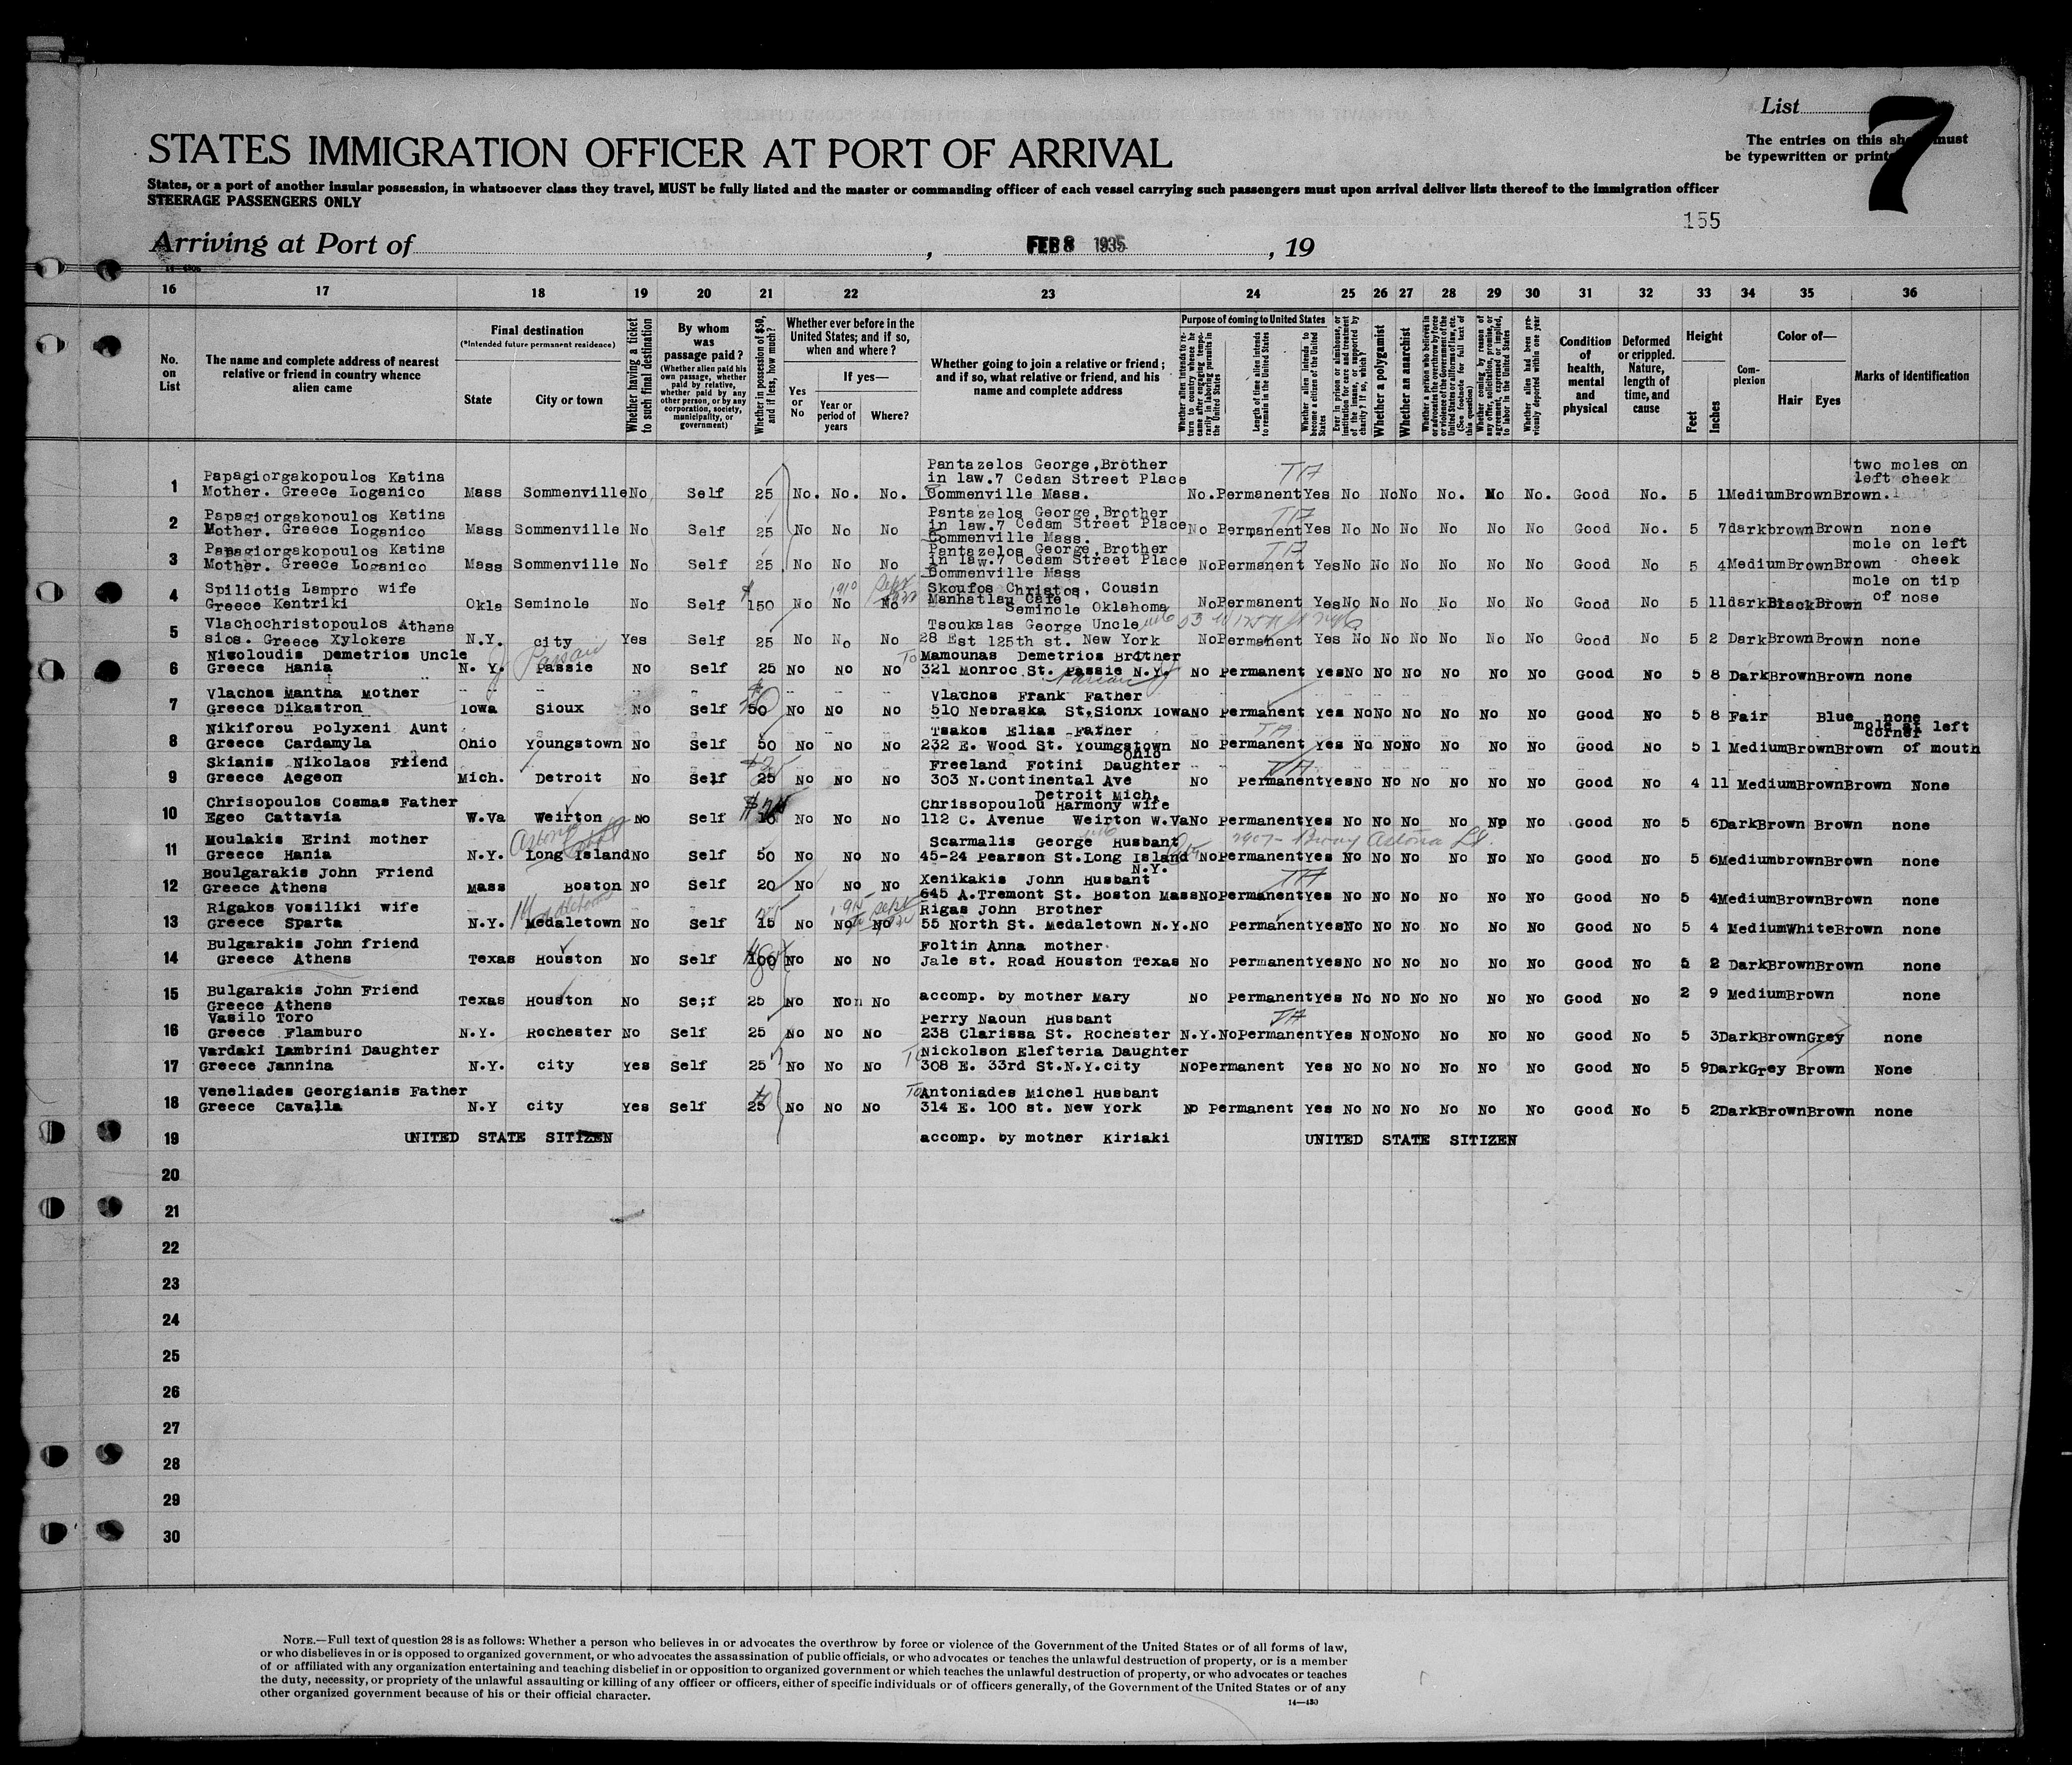 List
7
The entries on this sheet must
be typewritten or printed
STATES IMMIGRATION OFFICER AT PORT OF ARRIVAL
States, or a port of another insular possession, in whatsoever class they travel, MUST be fully listed and the master or commanding officer of each vessel carrying such passengers must upon arrival deliver lists thereof to the immigration officer
STEERAGE PASSENGERS ONLY
155
Arriving at Port of , FEB 8 1935 , 19
16 17 18 19 20 21 22 23 24 25 26 27 28 29 30 31 32 33 34 35 36
No. on List
The name and complete address of nearest relative or friend in country whence alien came
Final destination
(*Intended future permanent residence)
State City or town
Whether having a ticket to such final destination
By whom was passage paid?
(Whether alien paid his own passage, whether paid by relative, whether paid by any other person, or by any corporation, society, municipality, or government)
Whether in possession of $50, and if less, how much?
Whether ever before in the United States; and if so, when and where?
Yes or No
If yes—
Year or period of years Where?
Whether going to join a relative or friend; and if so, what relative or friend, and his name and complete address
Purpose of coming to United States
Whether alien intends to return to country whence he came after engaging temporarily in laboring pursuits in the United States
Length of time alien intends to remain in the United States
Whether alien intends to become a citizen of the United States
Ever in prison or almshouse, or institution for care and treatment of the insane, or supported by charity? If so, which?
Whether a polygamist
Whether an anarchist
Whether a person who believes in or advocates the overthrow by force or violence of the Government of the United States or all forms of law, etc. (See footnote for full text of this question)
Whether coming by reason of any offer, solicitation, promise, or agreement, expressed or implied, to labor in the United States
Whether alien had been previously deported within one year
Condition of health, mental and physical
Deformed or crippled. Nature, length of time, and cause
Height
Feet Inches
Complexion
Color of—
Hair Eyes
Marks of identification
Pantazelos George,Brother two moles on
Papagiorgakopoulos Katina in law.7 Cedan Street Place TA left cheek
1 Mother. Greece Loganico Mass Sommenville No Self 25 No. No. No. Sommenville Mass. No. Permanent Yes No No No No. No No. Good No. 5 1 Medium Brown Brown.
Papagiorgakopoulos Katina Pantazelos George,Brother TA
2 Mother. Greece Loganico Mass Sommenville No Self 25 No No No in law.7 Cedam Street Place No Permanent Yes No No No No No No Good No. 5 7 dark brown Brown none
Sommenville Mass.
Papagiorgakopoulos Katina Pantazelos George,Brother TA mole on left
3 Mother. Greece Loganico Mass Sommenville No Self 25 No No No in law.7 Cedam Street Place No Permanent Yes No No No No No No Good No 5 4 Medium Brown Brown cheek
Sommenville Mass
Spiliotis Lampro wife 1910 Skoufos Christos, Cousin mole on tip
4 Greece Kentriki Okla Seminole No Self $ 150 No No No Manhatlan Cafe No Permanent Yes No No No No No No Good No 5 11 dark Black Brown of nose
Seminole Oklahoma
Vlachochristopoulos Athana Tsoukalas George Uncle
5 sios. Greece Xylokers N.Y. city Yes Self 25 No No No 28 Est 125th st. New York No Permanent Yes No No No No No No Good No 5 2 Dark Brown Brown none
Nicoloudis Demetrios Uncle To Mamounas Demetrios Brother
6 Greece Hania N. Y. Passie No Self 25 No No No 321 Monroc St. Passie N.Y. No Permanent Yes No No No No No No Good No 5 8 Dark Brown Brown none
Vlachos Mantha Mother Vlachos Frank Father
7 Greece Dikastron Iowa Sioux No Self 50 No No No 510 Nebraska St,Sionx Iowa No Permanent Yes No No No No No No Good No 5 8 Fair Blue none
Nikiforeu polyxeni Aunt Tsakos Elias Father TA mole at left
8 Greece Cardamyla Ohio Youngstown No Self 50 No No No 232 E. Wood St. Youmgstown No Permanent Yes No No No No No No Good No 5 1 Medium Brown Brown corner of mouth
Ohio
Skianis Nikolaos Friend Freeland Fotini Daughter TA
9 Greece Aegeon Mich. Detroit No Self 25 No No No 303 N.Continental Ave No Permanent Yes No No No No No No Good No 4 11 Medium Brown Brown None
Detroit Mich.
Chrisopoulos Cosmas Father Chrissopoulou Harmony wife
10 Egeo Cattavia W.Va Weirton No Self 10 No No No 112 C. Avenue Weirton W.Va No Permanent Yes No No No No No No Good No 5 6 Dark Brown Brown none
Moulakis Erini mother Astoria Scarmalis George Husbant 2907 - Astoria L.I.
11 Greece Hania N.Y. Long Island No Self 50 No No No 45-24 Pearson St.Long Island No Permanent Yes No No No No No No Good No 5 6 Medium brown Brown none
N.Y.
Boulgarakis John Friend Xenikakis John Husbant TA
12 Greece Athens Mass Boston No Self 20 No No No 645 A.Tremont St. Boston Mass No Permanent Yes No No No No No No Good No 5 4 Medium Brown Brown none
Rigakos Vosiliki wife Rigas John Brother
13 Greece Sparta N.Y. Medaletown No Self 15 No No No 55 North St. Medaletown N.Y. No Permanent Yes No No No No No No Good No 5 4 Medium White Brown none
Bulgarakis John friend Foltin Anna mother
14 Greece Athens Texas Houston No Self 100 No No No Jale st. Road Houston Texas No Permanent Yes No No No No No No Good No 5 2 Dark Brown Brown none
Bulgarakis John Friend
15 Greece Athens Texas Houston No Se;f 25 No Non No accomp. by mother Mary No Permanent Yes No No No No No No Good No 2 9 Medium Brown none
Vasilo Toro Perry Naoun Husbant TA
16 Greece Flamburo N.Y. Rochester No Self 25 No No No 238 Clarissa St. Rochester N.Y. No Permanent Yes No No No No No No Good No 5 3 Dark Brown Grey none
Vardaki Lambrini Daughter Nickolson Elefteria Daughter
17 Greece Jannina N.Y. city Yes Self 25 No No No 308 E. 33rd St.N.Y.city No Permanent Yes No No No No No No Good No 5 9 Dark Grey Brown None
Veneliades Georgianis Father To Antoniades Michel Husbant
18 Greece Cavalla N.Y city Yes Self 25 No No No 314 E. 100 st. New York No Permanent Yes No No No No No No Good No 5 2 Dark Brown Brown none
19 UNITED STATE SITIZEN accomp. by mother Kiriaki UNITED STATE SITIZEN
20
21
22
23
24
25
26
27
28
29
30
NOTE.—Full text of question 28 is as follows: Whether a person who believes in or advocates the overthrow by force or violence of the Government of the United States or of all forms of law,
or who disbelieves in or is opposed to organized government, or who advocates the assassination of public officials, or who advocates or teaches the unlawful destruction of property, or is a member
of or affiliated with any organization entertaining and teaching disbelief in or opposition to organized government or which teaches the unlawful destruction of property, or who advocates or teaches
the duty, necessity, or propriety of the unlawful assaulting or killing of any officer or officers, either of specific individuals or of officers generally, of the Government of the United States or of any
other organized government because of his or their official character.
14—430